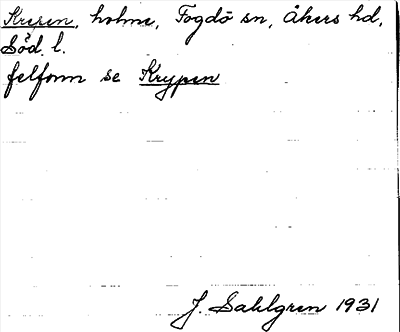 Krysen, holme, Fogdö sn, Åkers hd,
Söd. l.
felform se Krypen
J. Sahlgren 1931